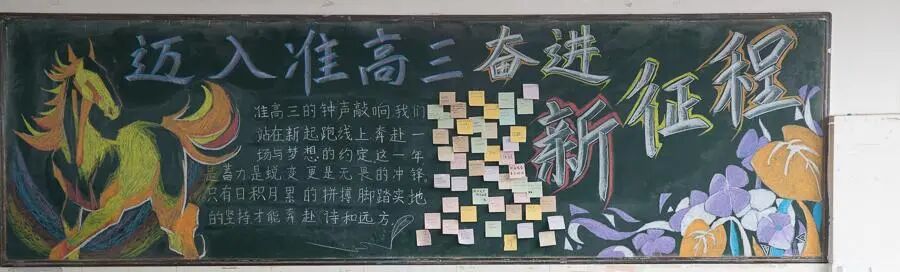 迈入准高三 奋进新征程
准高三的钟声敲响,我们
站在新起跑线上,奔赴一
场与梦想的约定这一年
是蓄力是蜕变更是无畏的冲锋
只有日积月累的拼搏脚踏实地
的坚持才能奔赴诗和远方